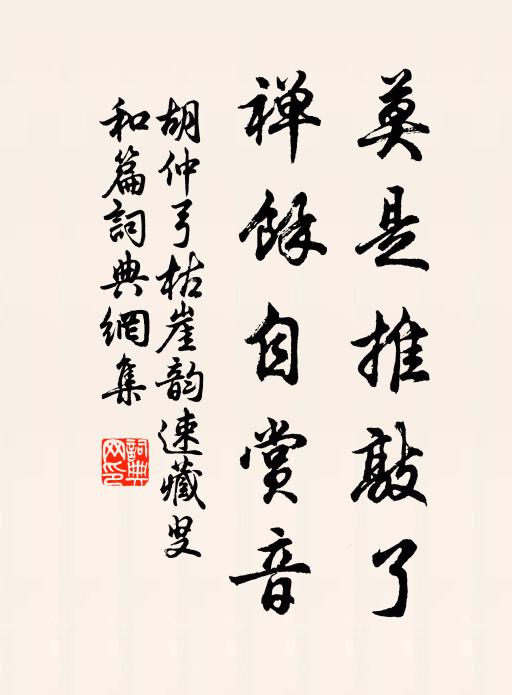 莫是推敲了
禅餘自赏音
胡仲弓枯崖韵速藏叟
和篇詞典網集
詞典网印